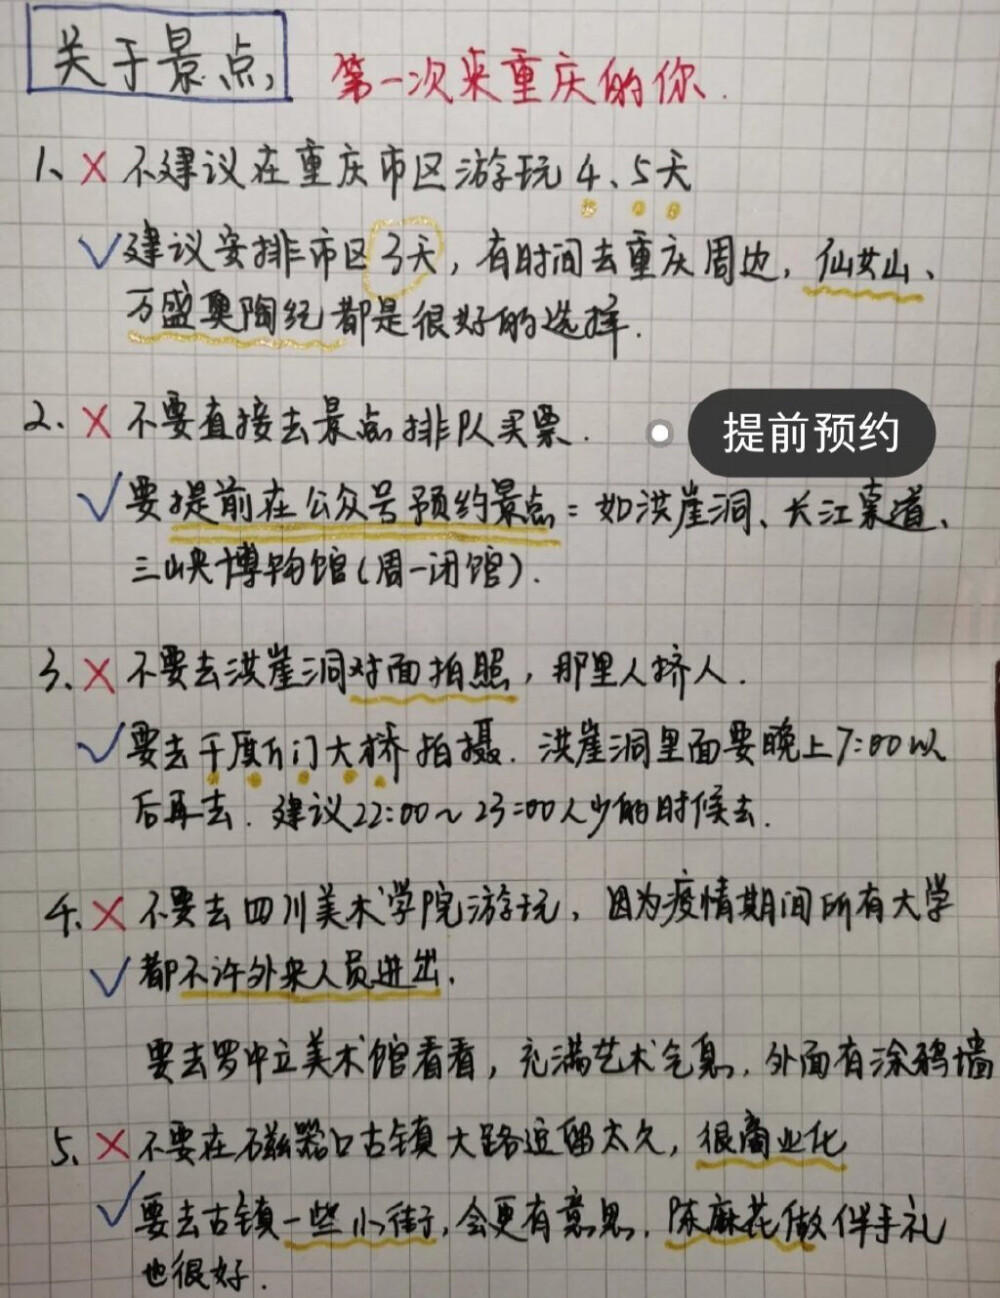 关于景点,
第一次来重庆的你.
1、×不建议在重庆市区游玩4、5天
√建议安排市区3天,有时间去重庆周边,仙女山、
万盛奥陶纪都是很好的选择.
2、×不要直接去景点排队买票.
提前预约
√要提前在公众号预约景点:如洪崖洞、长江索道、
三峡博物馆(周一闭馆).
3、×不要去洪崖洞对面拍照,那里人挤人.
√要去千厮门大桥拍摄.洪崖洞里面要晚上7:00以
后再去.建议22:00~23:00人少的时候去.
4、×不要去四川美术学院游玩,因为疫情期间所有大学
√都不许外来人员进出.
要去罗中立美术馆看看,充满艺术气息,外面有涂鸦墙
5、×不要在磁器口古镇大路逗留太久,很商业化
√要去古镇一些小街,会更有意思.陈麻花做伴手礼
也很好.